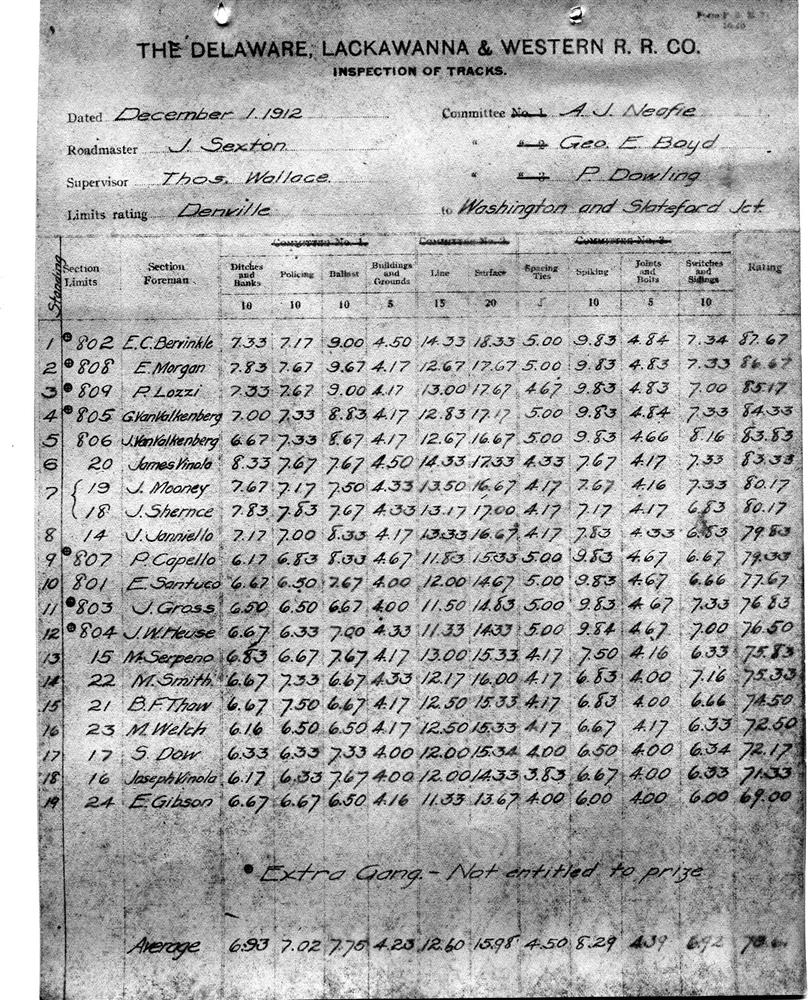 THE DELAWARE, LACKAWANNA & WESTERN R. R. CO.
INSPECTION OF TRACKS.
Dated December 1, 1912 Committee No. 1 A. J. Neafie
Roadmaster J. Sexton " " 2 Geo. E. Boyd
Supervisor Thos. Wallace. " " 3 P. Dowling
Limits rating Denville to Washington and Slateford Jct.
COMMITTEE No. 1. COMMITTEE No. 2. COMMITTEE No. 3.
Standing Section Limits Section Foreman Ditches and Banks Policing Ballast Buildings and Grounds Line Surface Spacing Ties Spiking Joints and Bolts Switches and Sidings Rating
10 10 10 5 15 20 5 10 5 10
1 802 E.C. Bervinkle 7.33 7.17 9.00 4.50 14.33 18.33 5.00 9.83 4.84 7.34 87.67
2 808 E. Morgan 7.83 7.67 9.67 4.17 12.67 17.67 5.00 9.83 4.83 7.33 86.67
3 809 P. Lozzi 7.33 7.67 9.00 4.17 13.00 17.67 4.67 9.83 4.83 7.00 85.17
4 805 G. VanValkenberg 7.00 7.33 8.83 4.17 12.83 17.17 5.00 9.83 4.84 7.33 84.33
5 806 J. VanValkenberg 6.67 7.33 8.67 4.17 12.67 16.67 5.00 9.83 4.66 8.16 83.83
6 20 James Vinola 8.33 7.67 7.67 4.50 14.33 17.33 4.33 7.67 4.17 7.33 83.33
7 { 19 J. Mooney 7.67 7.17 7.50 4.33 13.50 16.67 4.17 7.67 4.16 7.33 80.17
18 J. Shernce 7.83 7.83 7.67 4.33 13.17 17.00 4.17 7.17 4.17 6.83 80.17
8 14 J. Janniello 7.17 7.00 8.33 4.17 13.33 16.67 4.17 7.83 4.33 6.83 79.83
9 807 P. Capello 6.17 6.83 8.33 4.67 11.83 15.33 5.00 9.83 4.67 6.67 79.33
10 801 E. Santuco 6.67 6.50 7.67 4.00 12.00 14.67 5.00 9.83 4.67 6.66 77.67
11 803 J. Gross 6.50 6.50 6.67 4.00 11.50 14.83 5.00 9.83 4.67 7.33 76.83
12 804 J.W. Heuse 6.67 6.33 7.00 4.33 11.33 14.33 5.00 9.84 4.67 7.00 76.50
13 15 M. Serpeno 6.83 6.67 7.67 4.17 13.00 15.33 4.17 7.50 4.16 6.33 75.83
14 22 M. Smith 6.67 7.33 6.67 4.33 12.17 16.00 4.17 6.83 4.00 7.16 75.33
15 21 B.F. Thaw 6.67 7.50 6.67 4.17 12.50 15.33 4.17 6.83 4.00 6.66 74.50
16 23 M. Welch 6.16 6.50 6.50 4.17 12.50 15.33 4.17 6.67 4.17 6.33 72.50
17 17 S. Dow 6.33 6.33 7.33 4.00 12.00 15.34 4.00 6.50 4.00 6.34 72.17
18 16 Joseph Vinola 6.17 6.33 7.67 4.00 12.00 14.33 3.83 6.67 4.00 6.33 71.33
19 24 E. Gibson 6.67 6.67 6.50 4.16 11.33 13.67 4.00 6.00 4.00 6.00 69.00
Extra Gang. - Not entitled to prize
Average 6.93 7.02 7.75 4.23 12.60 15.98 4.50 8.29 4.39 6.92